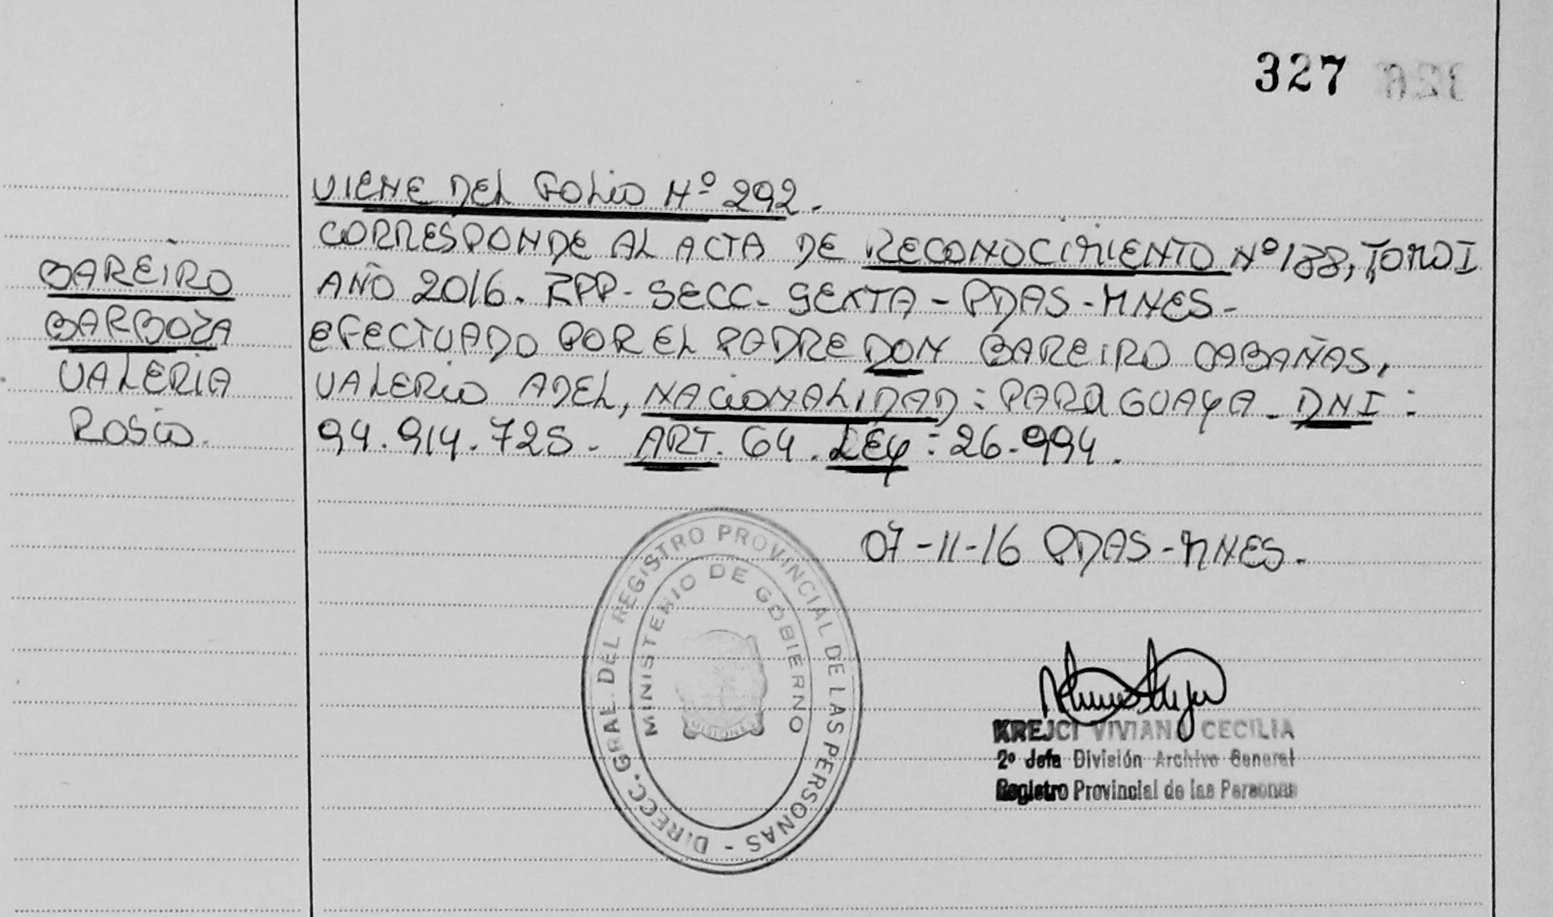 327 326
VIENE DEL FOLIO Nº 292.
CORRESPONDE AL ACTA DE RECONOCIMIENTO Nº 188, TOMO I
AÑO 2016. RPP- SECC- SEXTA - PDAS - MNES -
EFECTUADO POR EL PADRE DON BAREIRO CABAÑAS,
VALERIO ADEL, NACIONALIDAD: PARAGUAYA - DNI:
94.914.725 - ART. 64. LEY: 26.994.
BAREIRO
BARBOZA
VALERIA
ROSIO.
07-11-16 PDAS-MNES-
DIRECC. GRAL. DEL REGISTRO PROVINCIAL DE LAS PERSONAS -
MINISTERIO DE GOBIERNO
MISIONES
KREJCI VIVIANA CECILIA
2º Jefa División Archivo General
Registro Provincial de las Personas